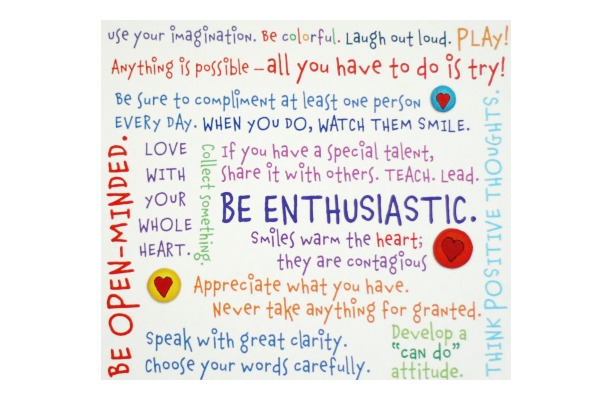 use your imagination. Be colorful. Laugh out loud. PLAY!
Anything is possible – all you have to do is try!
Be sure to compliment at least one person
EVERY DAY. WHEN YOU DO, WATCH THEM SMILE.
BE OPEN-MINDED.
LOVE
WITH
YOUR
WHOLE
HEART.
Collect something.
If you have a special talent,
share it with others. TEACH. Lead.
BE ENTHUSIASTIC.
Smiles warm the heart;
they are contagious
THINK POSITIVE THOUGHTS.
Appreciate what you have.
Never take anything for granted.
Speak with great clarity.
Choose your words carefully.
Develop a
"can do"
attitude.